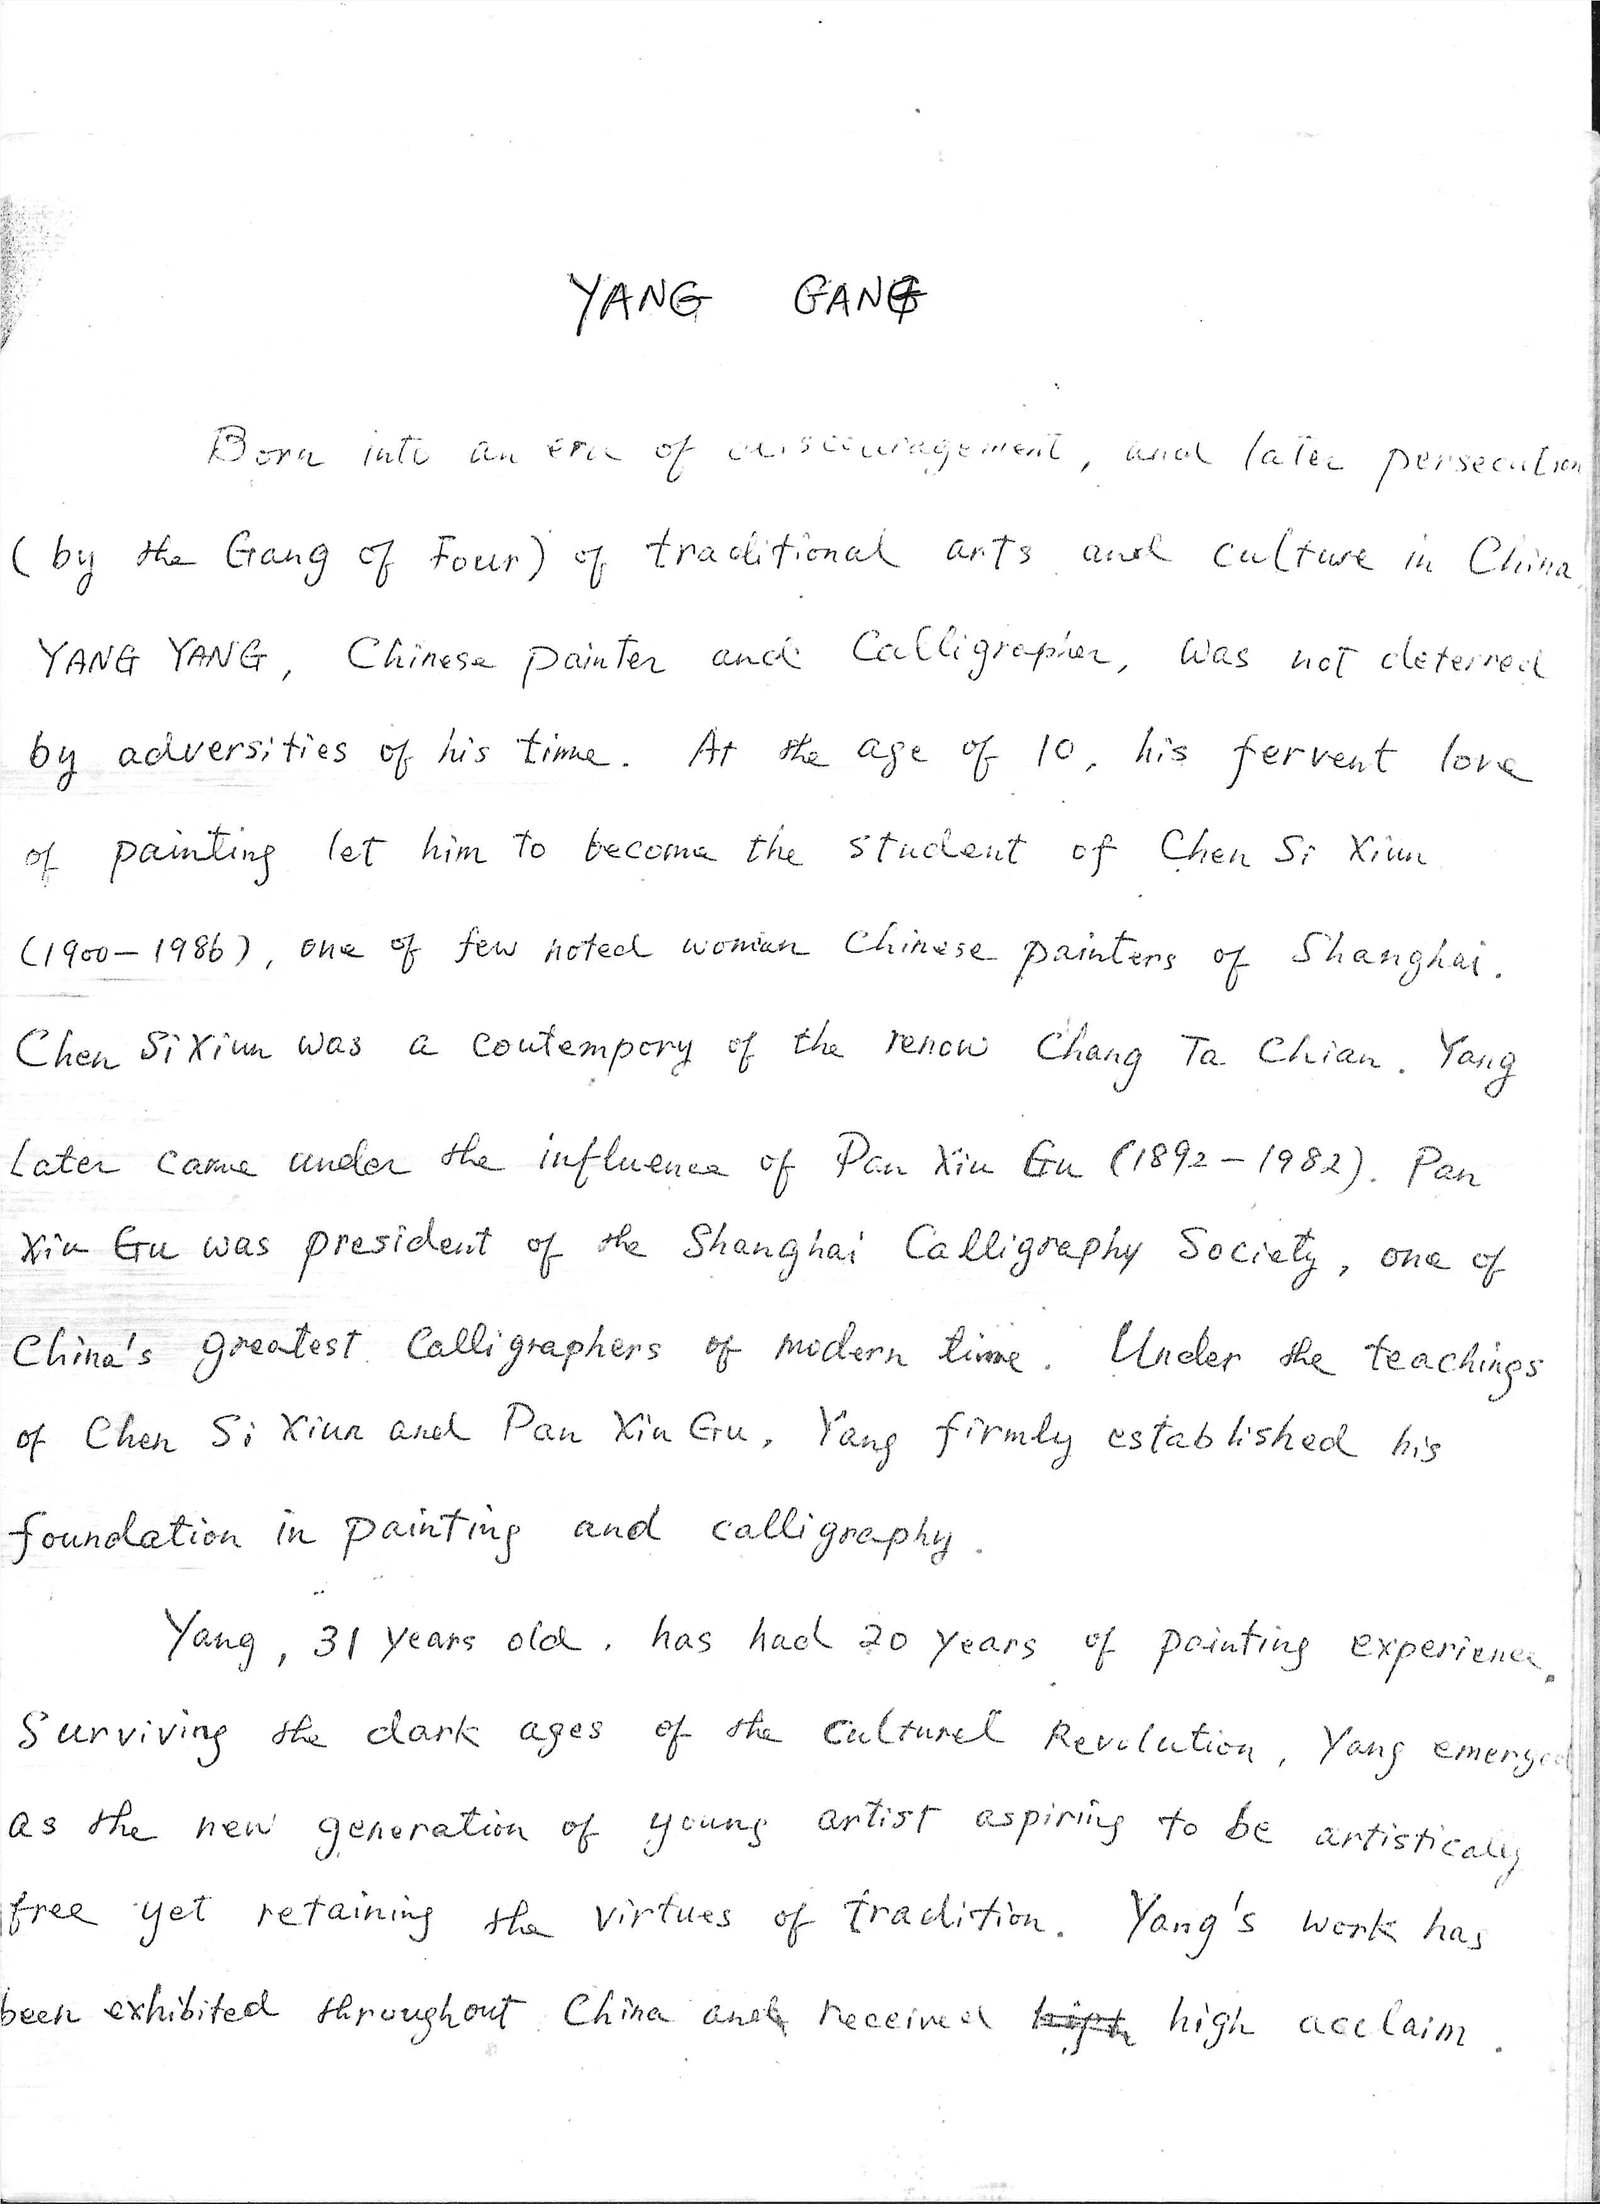 YANG GANG
Born into an era of discouragement, and later persecution
(by the Gang of Four) of traditional arts and culture in China,
YANG YANG, Chinese painter and Calligrapher, was not deterred
by adversities of his time. At the age of 10, his fervent love
of painting let him to become the student of Chen Si Xiun
(1900-1986), one of few noted woman Chinese painters of Shanghai.
Chen Si Xiun was a contempory of the renow Chang Ta Chian. Yang
Later came under the influence of Pan Xin Gu (1892-1982). Pan
Xin Gu was president of the Shanghai Calligraphy Society, one of
China's greatest Calligraphers of modern time. Under the teachings
of Chen Si Xiun and Pan Xin Gu, Yang firmly established his
foundation in painting and calligraphy.
Yang, 31 years old, has had 20 years of painting experience.
Surviving the dark ages of the Culturel Revolution, Yang emerged
as the new generation of young artist aspiring to be artistically
free yet retaining the virtues of tradition. Yang's work has
been exhibited throughout China and received high acclaim.